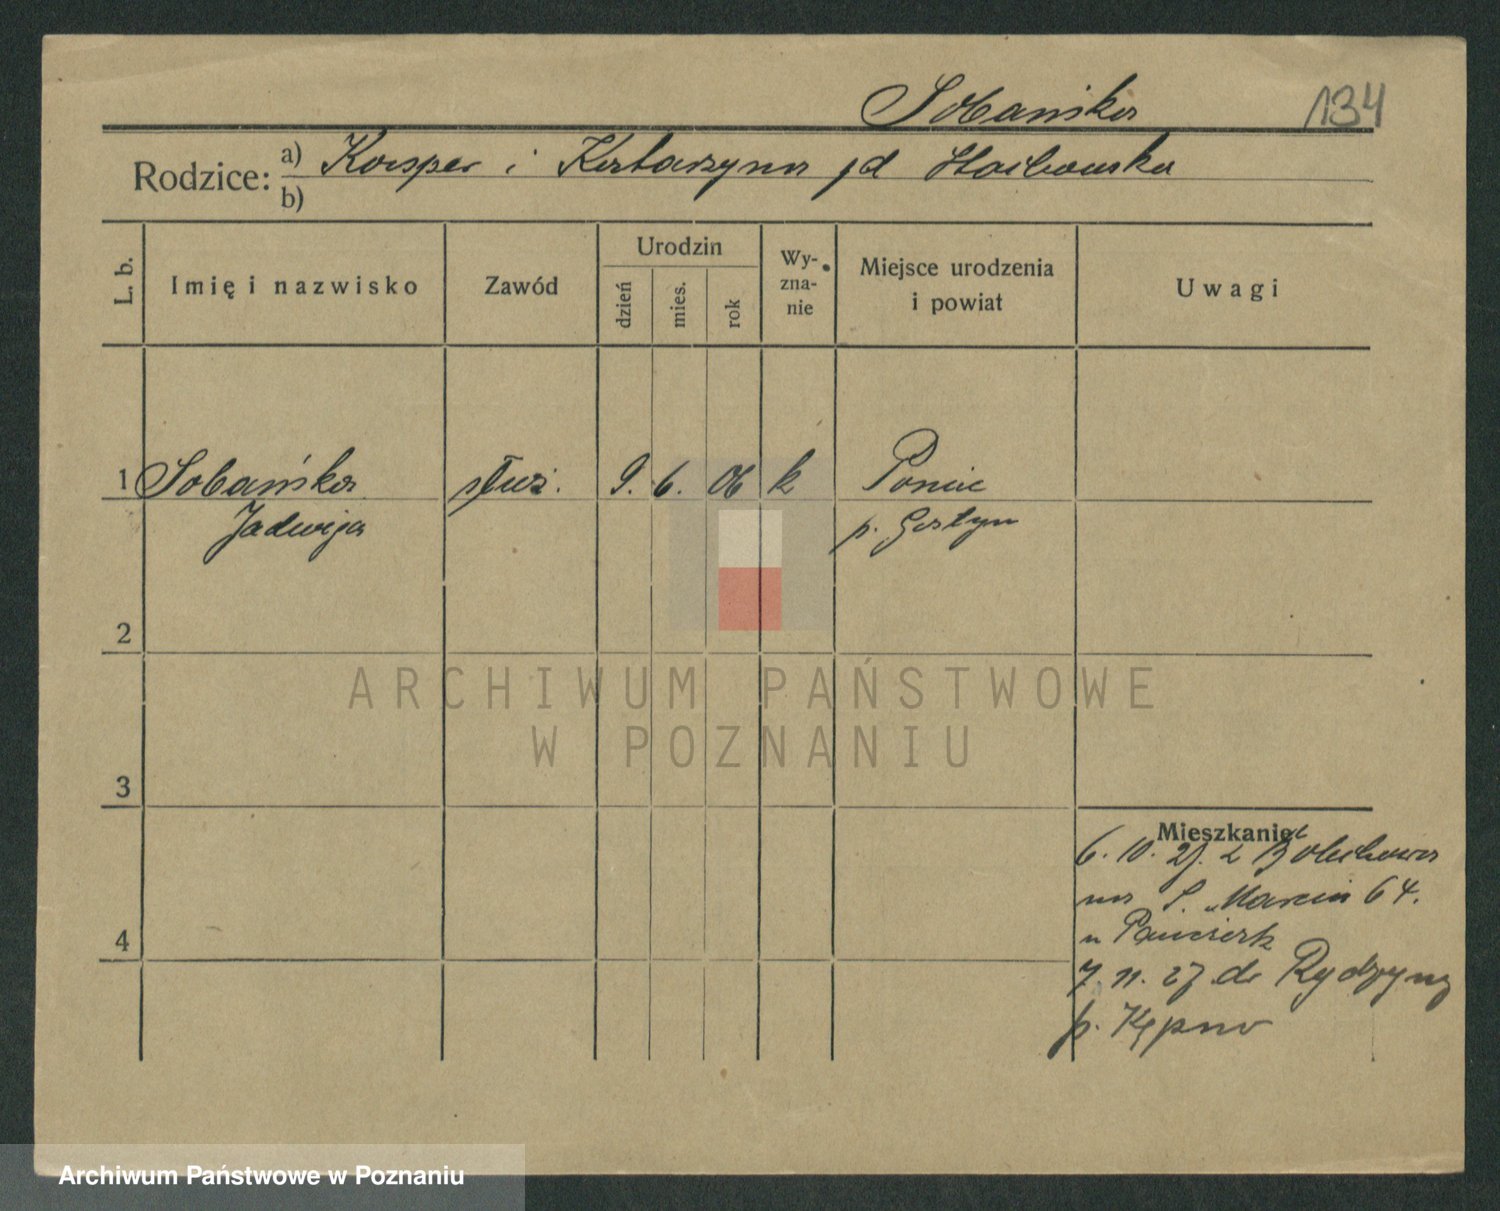 Sobańska 134
Rodzice: a) Kasper i Katarzyna
b)
L. b.
Imię i nazwisko
Zawód
Urodzin
dzień
mies.
rok
Wy-
zna-
nie
Miejsce urodzenia
i powiat
Uwagi
1 Sobańska służ. 9. 6. 06 k Poniec
Jadwiga p. Gostyń
2
3
4
Mieszkanie
6. 10. 27. z
na S. Marcin 64.
u
7. 11. 27 do Rydzyny
p. Kępno
ARCHIWUM PAŃSTWOWE
W POZNANIU
Archiwum Państwowe w Poznaniu